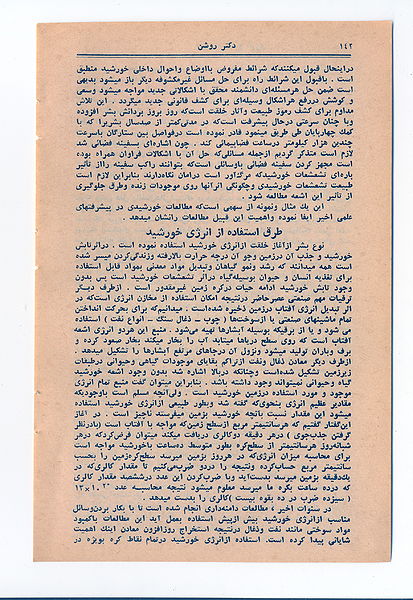 ۱۴۲ دکتر روشن
دراینحال قبول میکنندکه شرائط مفروض بااوضاع واحوال داخلی خورشید منطبق
است . باقبول این شرائط راه برای حل مسائل غیرمکشوفه دیگر باز میشود بدیهی
است ضمن حل هرمسئله‌ای دانشمند محقق با اشکالاتی جدید مواجه میشود وسعی
و کوشش دررفع هراشکال وسیله‌ای برای کشف قانونی جدید میگردد . این تلاش
مداوم برای کشف رموز طبیعت وآثار خلقت است‌که روز بروز بردانش بشر افزوده
وبا چنان سرعتی درحال پیشرفت است‌که در مدتی‌کمتر از صدسال بشریرا که با
کمک چهارپایان طی طریق مینمود قادر نموده است درفواصل بین ستارگان باسرعت
چندین هزار کیلومتر درساعت فضاپیمائی کند . چون اشاره‌ای بسفینه فضائی شد
لازم است متذکر گردیم ازجمله مسائلی‌که حل آن با اشکالات فراوان همراه بوده
است مجهز کردن سفینه فضائی باوسائلی است‌که بتوانند راکب سفینه رااز تأثیر
پاره‌ای تشعشعات خورشیدکه مرگ‌آور است درامان نگاه‌دارند بنابراین لازم است
طبیعت تشعشعات خورشیدی وچگونگی اثرآنها روی موجودات زنده وطرق جلوگیری
از تأثیر این اشعه مطالعه شود .
این یک مثال ونمونه از سهمی است‌که مطالعات خورشیدی در پیشرفتهای
علمی اخیر ایفا نموده واهمیت این قبیل مطالعات رانشان میدهد .
طرق استفاده از انرژی خورشید
نوع بشر ازآغاز خلقت ازانرژی خورشید استفاده نموده است . دراثرتابش
خورشید و جذب آن درزمین وجو آن درجه حرارت بالارفته وزندگی‌کردن میسر شده
است همه میدانند که رشد ونمو گیاهان وتبدیل مواد معدنی بمواد قابل استفاده
برای تغذیه انسان و حیوان بوسیله‌گیاه دراثر تشعشعات خورشید است پس بدون
وجود تابش خورشید ادامه حیات درکره زمین غیرمقدور است . ازطرف دیگر
ترقیات مهم صنعتی عصرحاضر درنتیجه امکان استفاده از مخازن انرژی است‌که در
اثر تبدیل انرژی آفتاب درزمین ذخیره شده‌است . میدانیم‌که برای بحرکت انداختن
تمام ماشینهای صنعتی یا ازسوخت‌ها ( چوب – ذغال سنگ – انواع نفت ) استفاده
می شود و یا از برقیکه بوسیله آبشارها تهیه می‌شود . منبع این هردو انرژی اشعه
آفتاب است که روی سطح دریاها میتابد آب را بخار میکند بخار صعود کرده و
برف وباران تولید میشود ونزول آن درجاهای مرتفع آبشارها را تشکیل میدهد .
ازطرف دیگر معادن ذغال ونفت ازتراکم بقایای موجودات گیاهی وحیوانی درطبقات
زیرزمین تشکیل شده‌است وچنانکه دربالا اشاره شد بدون وجود اشعه خورشید
گیاه وحیوانی نمیتواند وجود داشته باشد . بنابراین میتوان گفت منبع تمام انرژی
موجود و مورد استفاده درزمین خورشید است . ولی‌آنچه مسلم است باوجودیکه
مقادیر عظیم انرژی بنحوی‌که گفته شد وبطور طبیعی ازانرژی خورشید استفاده
میشود این مقدار نسبت بآنچه خورشید بزمین میفرستد ناچیز است . در آغاز
این‌گفتار گفتیم که هرسانتیمتر مربع ازسطح زمین‌که مواجه با آفتاب است (بادرنظر
گرفتن جذب‌جوی ) درهر دقیقه دوکالری دریافت میکند میتوان فرض‌کردکه درهر
شبانه‌روز هرسانتیمتر مربع ازسطح‌کره بطور متوسط ده‌ساعت باخورشید مواجه است
برای محاسبه میزان انرژی‌که در هرروز بزمین میرسد سطح‌کره‌زمین را بحسب
سانتیمتر مربع حساب‌کرده ونتیجه را دردو ضرب‌می‌کنیم تا مقدار کالری‌که در
یک‌دقیقه بزمین میرسد بدست‌آید وبا ضرب‌کردن این عدد درششصد مقدار کالری
که درده ساعت بکره ما میرسد معلوم میشود نتیجه محاسبه عدد ۱۳×۱۰²۰
( سیزده ضرب در ده بقوه بیست )کالری را بدست میدهد .
در سنوات اخیر ، مطالعات دامنه‌داری انجام شده است تا با بکار بردن‌وسائل
مناسب ازانرژی خورشید بیش ازپیش استفاده بعمل آید این مطالعات باکمبود
مواد سوختی مانند نفت وذغال درنتیجه استخراج روزافزون معادن آینک اهمیت
شایانی پیدا کرده است. استفاده ازانرژی خورشید درتمام نقاط کره بویژه در